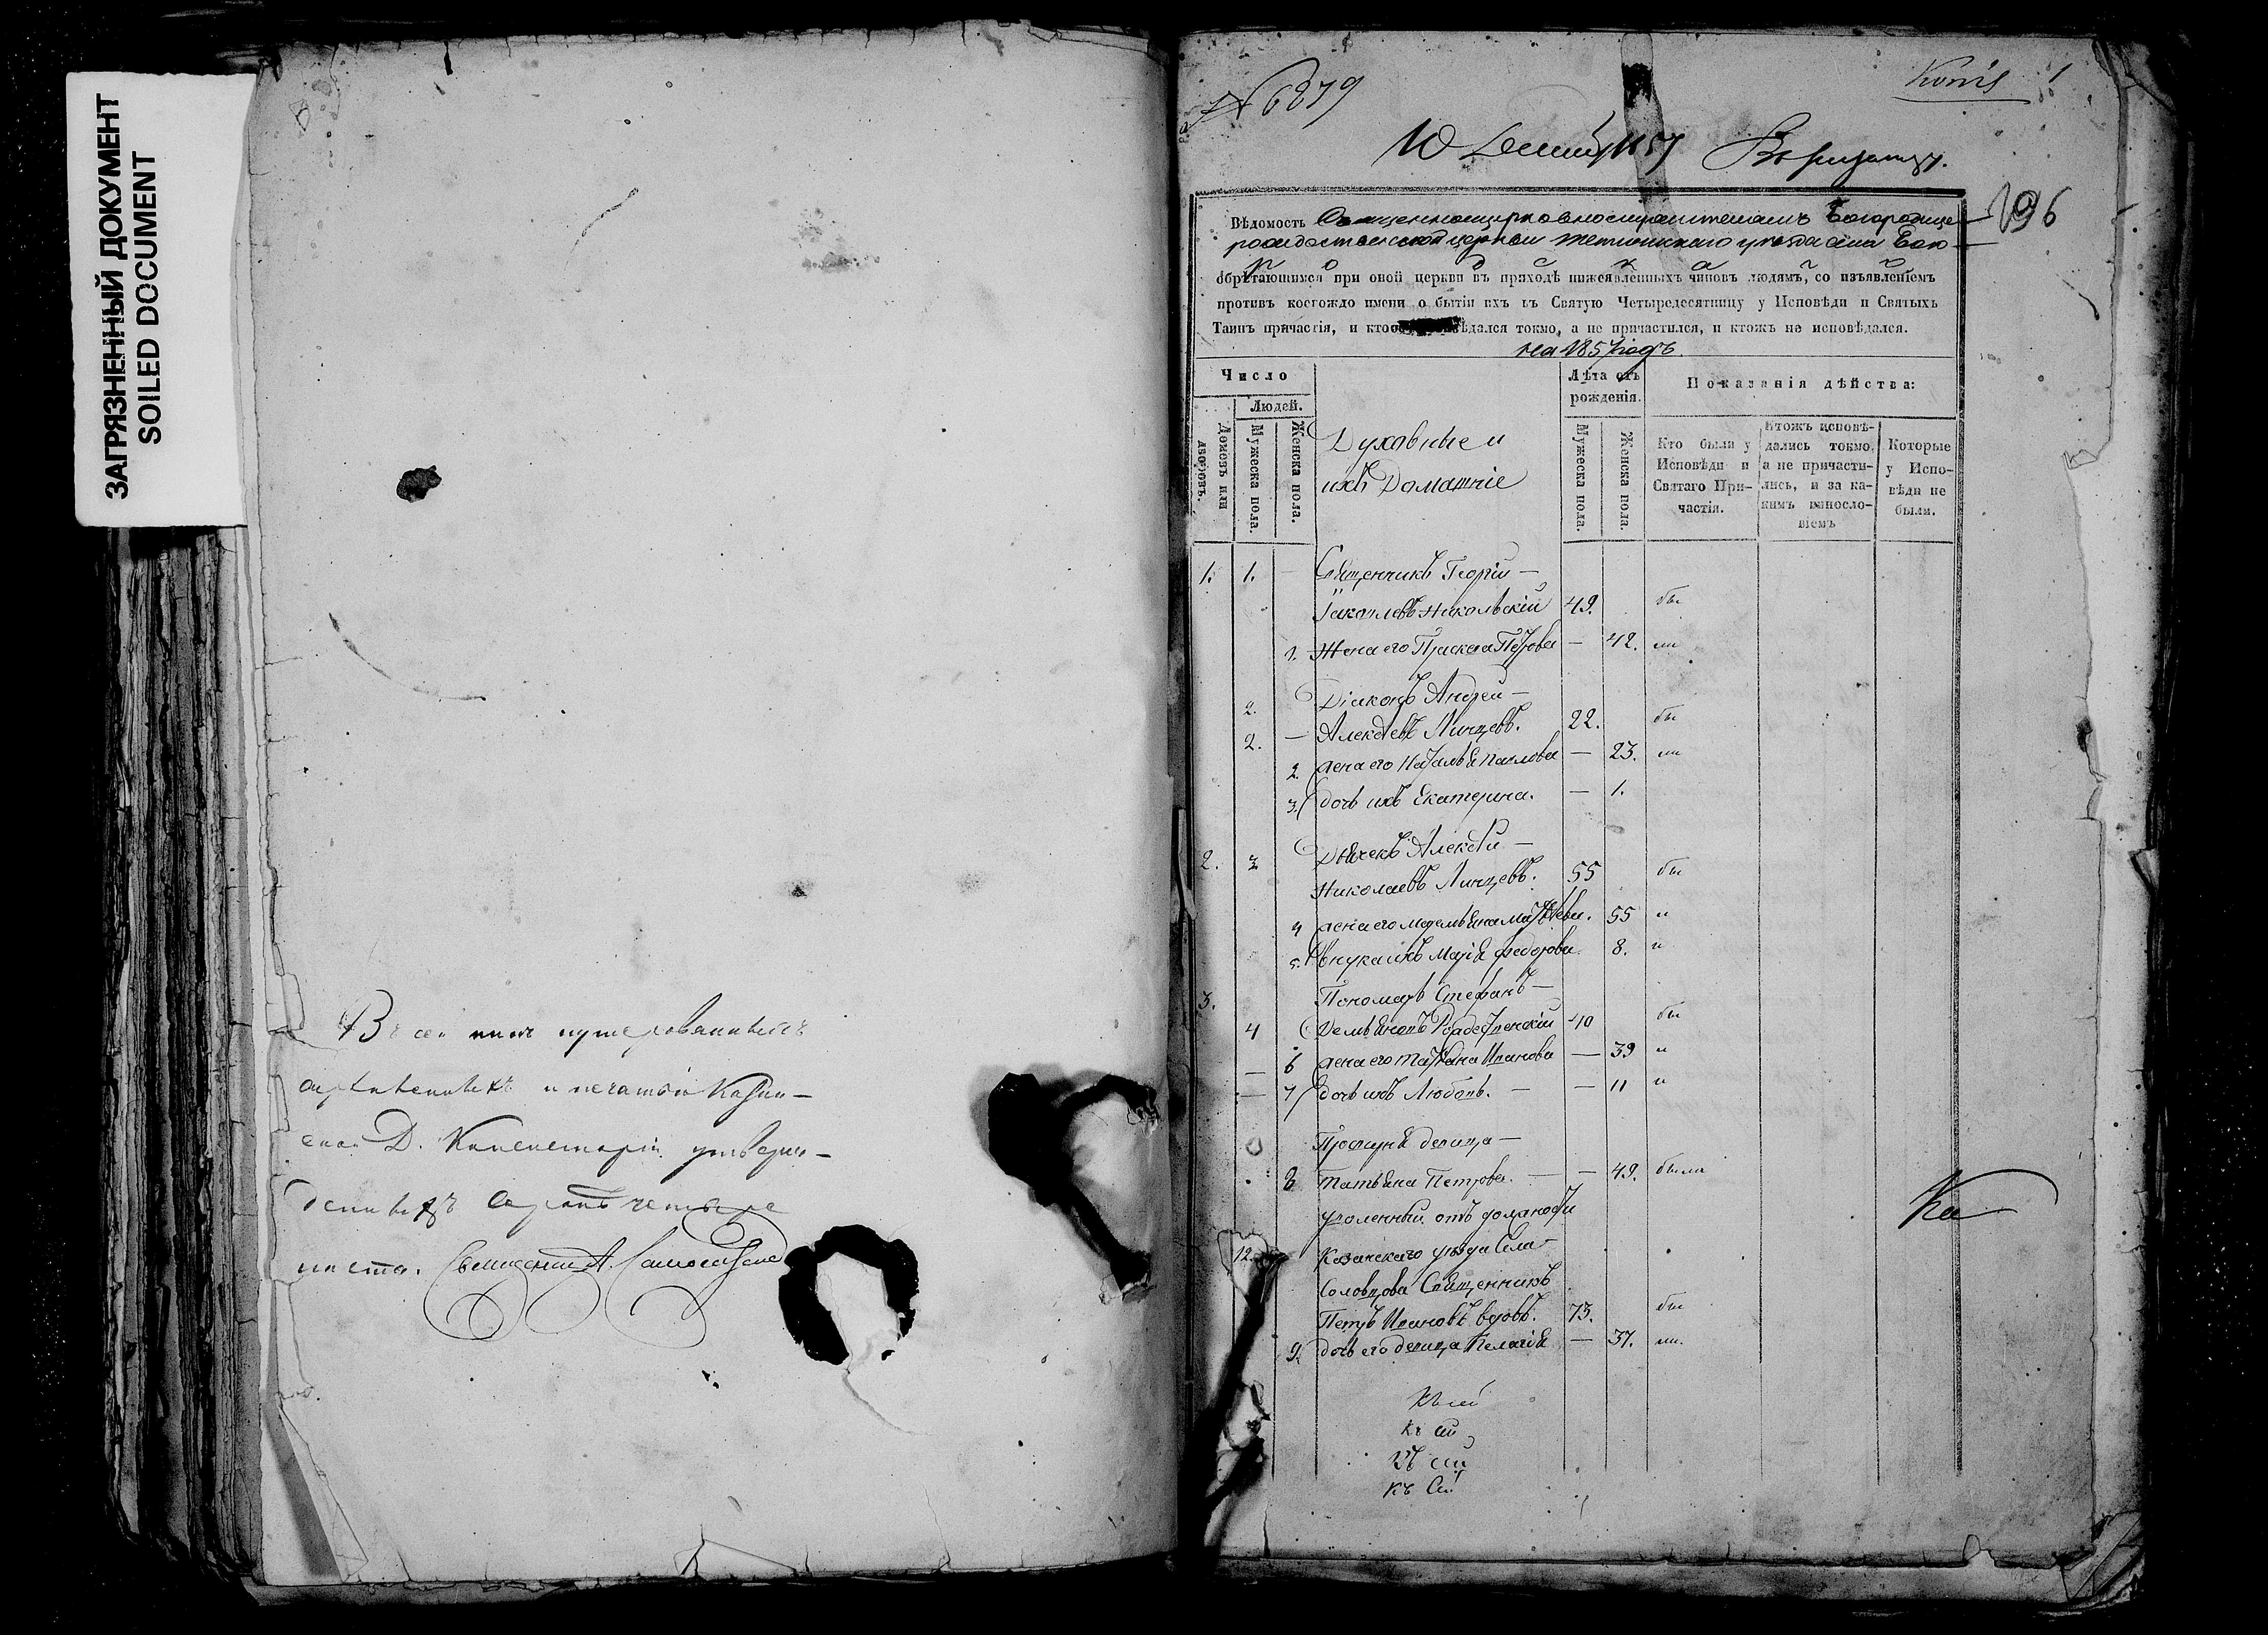 ЗАГРЯЗНЕННЫЙ ДОКУМЕНТ
SOILED DOCUMENT
Въ сей книге нумерованныхъ
и печатью Казан-
ской Д. Консисторiи утверж-
денныхъ сорокъ четыре
листа.
№ 6879
Копiя 1
10
196
Вѣдомость Священноцерковнослужителямъ Богородице
рождественской церкви Тетюшскаго уѣзда села
обрѣтающимся при оной церкви въ приходѣ нижеявленныхъ чиновъ людямъ, со изъявленiемъ
противъ коегождо имени о бытiи ихъ въ Святую Четыредесятницу у Исповѣди и Святыхъ
Таинъ причастiя, и кто исповѣдался токмо, а не причастился, и ктожъ не исповѣдался.
на 1857 годъ.
Число
Лѣта отъ
рожденiя.
Показанiя дѣйства:
Людей.
Домовъ или
дворовъ.
Мужеска пола.
Женска пола.
Духовные и
ихъ Домашнiе
Мужеска пола.
Женска пола.
Кто были у
Исповѣди и
Святаго При-
частiя.
Ктожъ исповѣ-
дались токмо,
а не причасти-
лись, и за ка-
кимъ винносло-
вiемъ
Которые
у Испо-
вѣди не
были.
1. 1. — Священникъ Георгiй —
Iаковлевъ Никольскiй 49. бы
1. Жена его Праскева Петрова — 42. ли
2. Дiаконъ Андрей —
2. — Алексѣевъ Линцевъ. 22. бы
2. жена его Наталья Павлова — 23. ли
3. дочь ихъ Екатерина. — 1.
2. 3 Дьячекъ Алексѣй —
Николаевъ Линцевъ. 55 бы
4 жена его Матвѣева. 55 и
5. внука ихъ Марiя Федорова 8. и
3. Пономарь Стефанъ —
4 Демьяновъ 40 бы
6 жена его Татьяна Иванова — 39 и
7 дочь ихъ Любовь. — 11 и
Просфирня девица —
8 Татьяна Петрова. — 49. была
уволенный отъ должности
12. Казанскаго уѣзда Села
Соловцова Священникъ
Петръ Ивановъ вдовъ. 73. бы
9. дочь его девица Пелагiя — 37. ли.
Къ сей
Къ сей
Къ сей
Къ Сей
Ка